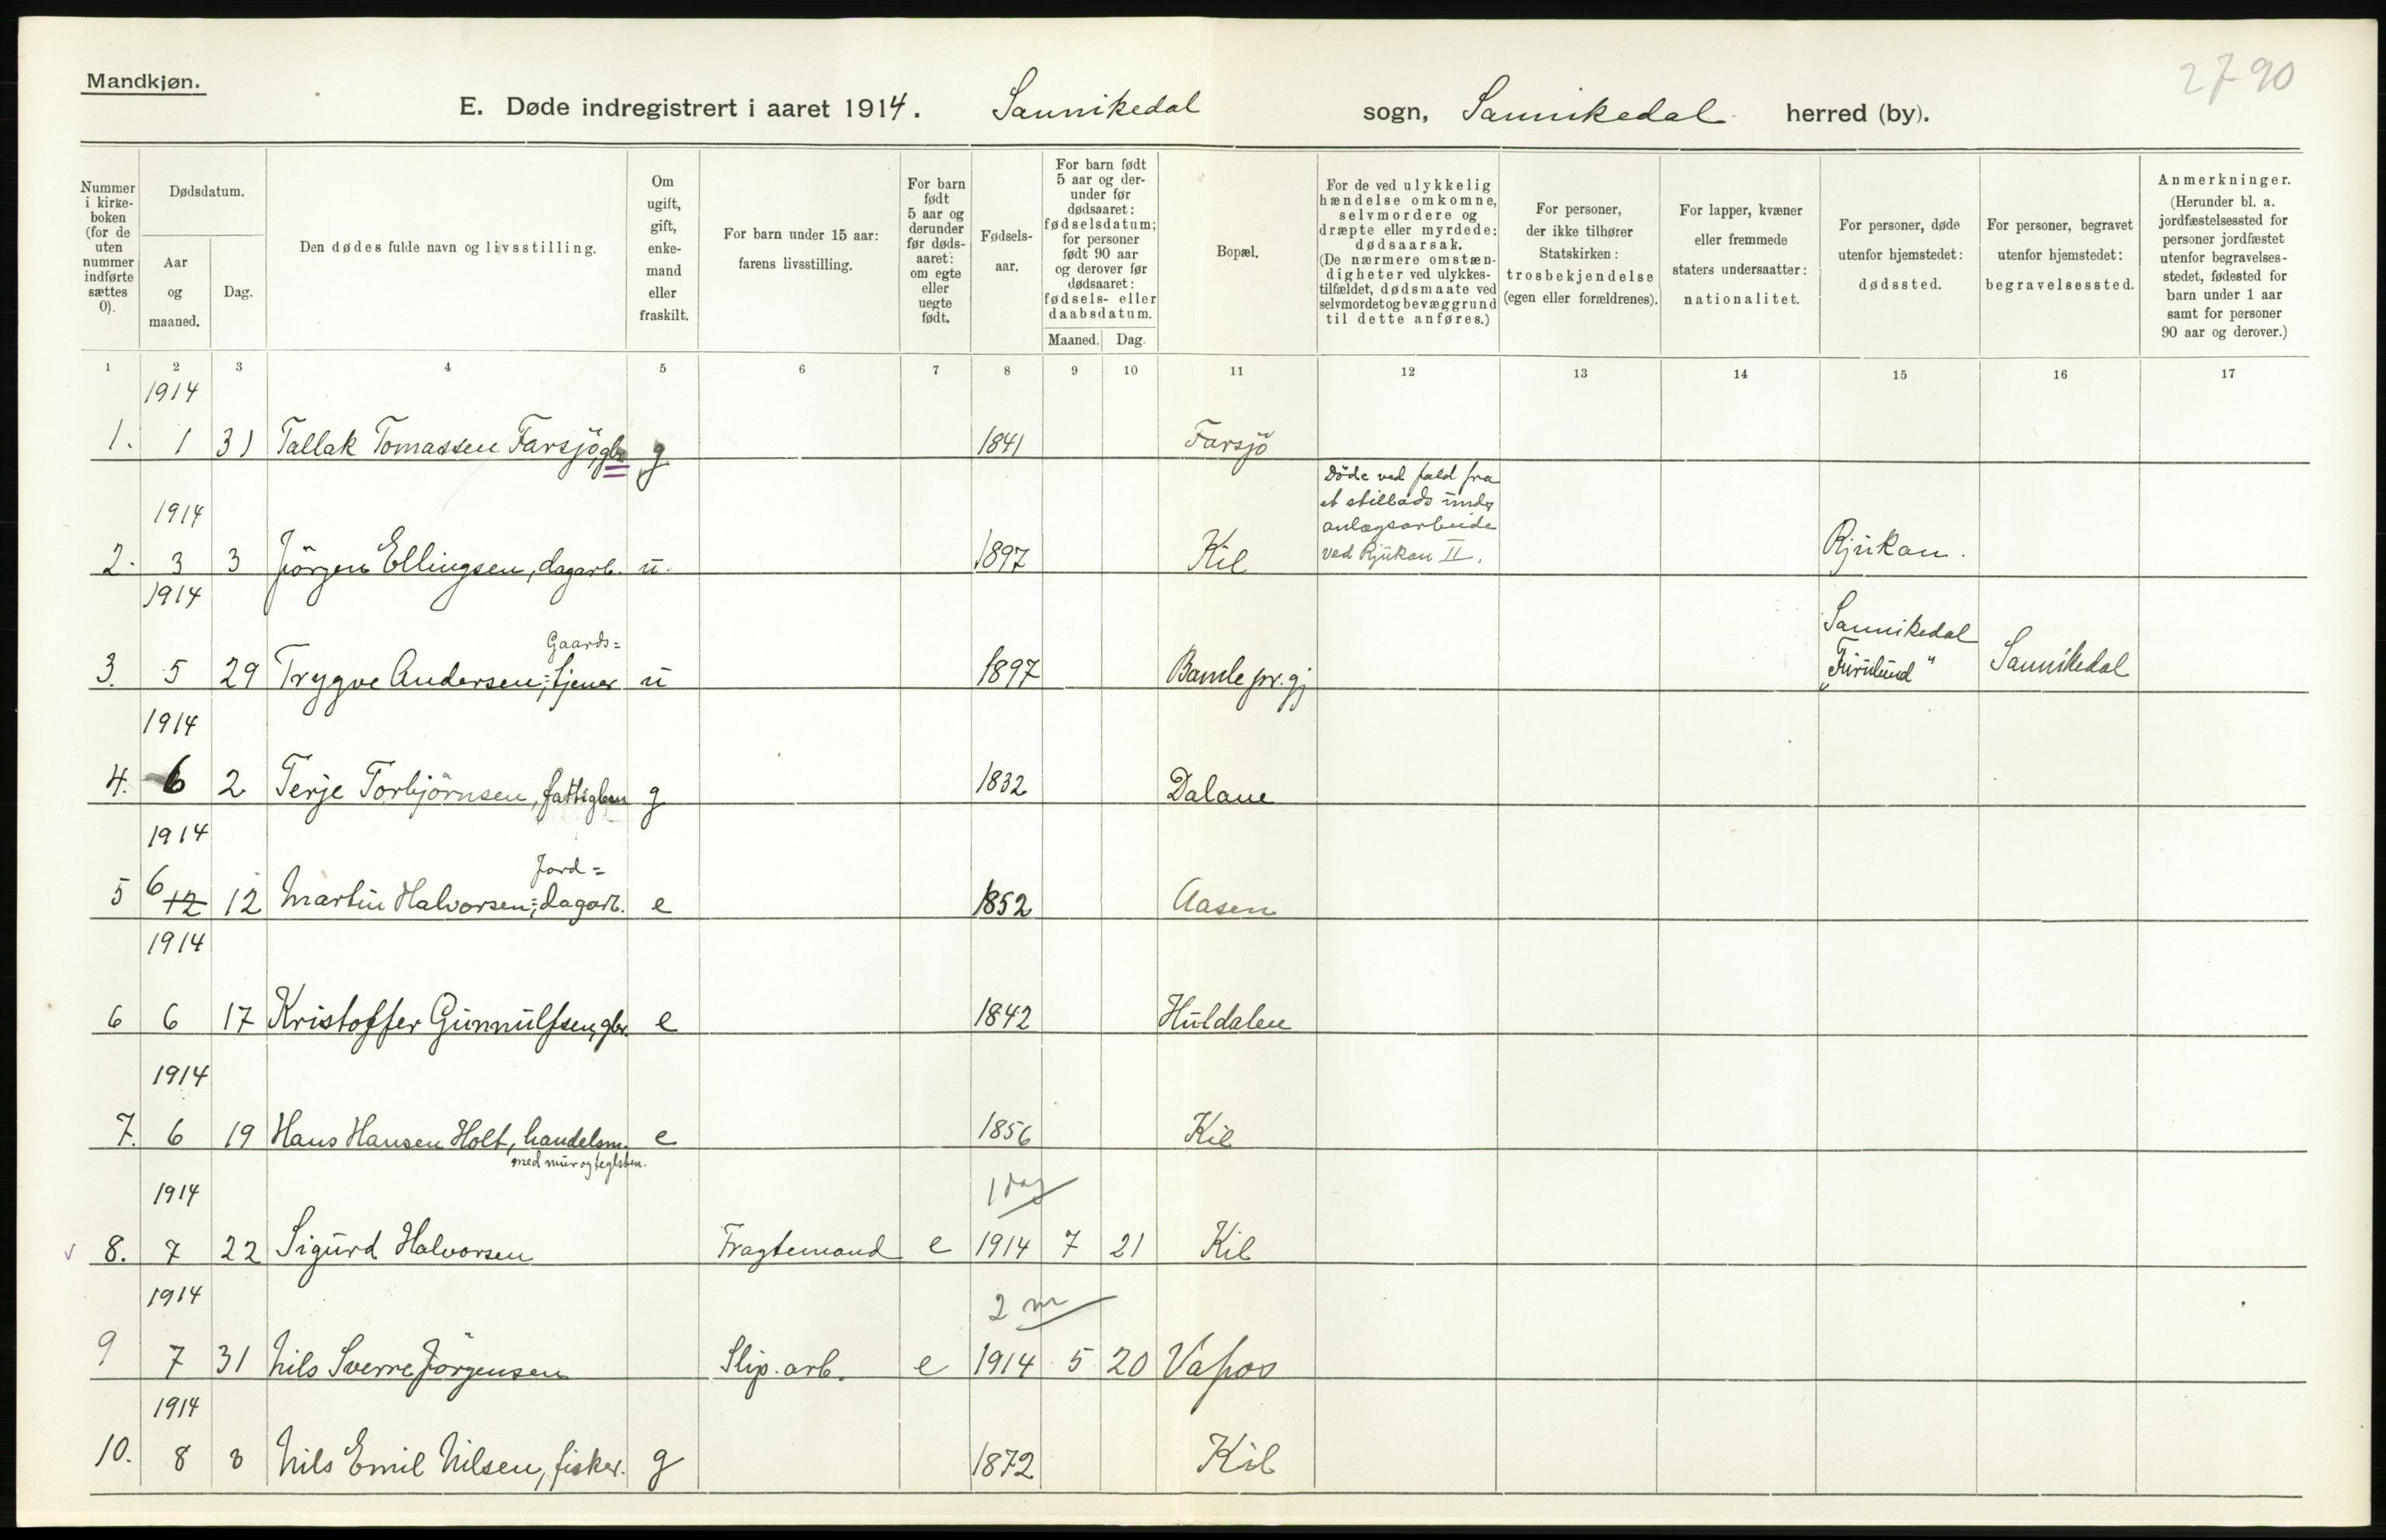 Mandkjøn.
2790
E. Døde indregistrert i aaret 1914. Sannikedal sogn, Sannikedal herred (by).
Nummer i kirke- boken (for de uten nummer indførte sættes 0).
Dødsdatum.
Aar og maaned.
Dag.
Den dødes fulde navn og livsstilling.
Om ugift, gift, enke- mand eller fraskilt.
For barn under 15 aar: farens livsstilling.
For barn født 5 aar og derunder før døds- aaret: om egte eller uegte født.
Fødsels- aar.
For barn født 5 aar og der- under før dødsaaret: fødselsdatum; for personer født 90 aar og derover før dødsaaret: fødsels- eller daabsdatum.
Maaned. Dag.
Bopæl.
For de ved ulykkelig hændelse omkomne, selvmordere og dræpte eller myrdede: dødsaarsak. (De nærmere omstæn- digheter ved ulykkes- tilfældet, dødsmaate ved selvmordet og bevæggrund til dette anføres.)
For personer, der ikke tilhører Statskirken: trosbekjendelse (egen eller forældrenes).
For lapper, kvæner eller fremmede staters undersaatter: nationalitet.
For personer, døde utenfor hjemstedet: dødssted.
For personer, begravet utenfor hjemstedet: begravelsessted.
Anmerkninger. (Herunder bl. a. jordfæstelsessted for personer jordfæstet utenfor begravelses- stedet, fødested for barn under 1 aar samt for personer 90 aar og derover.)
1 2 3 4 5 6 7 8 9 10 11 12 13 14 15 16 17
1914
1. 1 31 Tallak Tomassen Farsjö, gbr g 1841 Farsjö
1914
Döde ved fald fra
et stillads under
anlægsarbeide
ved Rjukan II.
2. 3 3 Jörgen Ellingsen, dagarb. u. 1897 Kil Rjukan.
1914
Gaards=
Sannikedal
3. 5 29 Trygve Andersen, =tjener u 1897 Bamle pr.gj „Furulund" Sannikedal
1914
4. 6 2 Terje Torbjörnsen, fattiglem g 1832 Dalane
1914
Jord=
5 6 12 12 Martin Halvorsen, =dagarb. e 1852 Aasen
1914
6 6 17 Kristoffer Gunnulfsen, gbr. e 1842 Huldalen
1914
7. 6 19 Hans Hansen Holt, handelsm. e 1856 Kil
med mur og teglsten.
1914 1 dag
8. 7 22 Sigurd Halvorsen Fragtemand e 1914 7 21 Kil
1914 2 m
9 7 31 Nils Sverre Jörgensen Slip. arb. e 1914 5 20 Vafos
1914
10. 8 3 Nils Emil Nilsen, fisker. g 1872 Kil